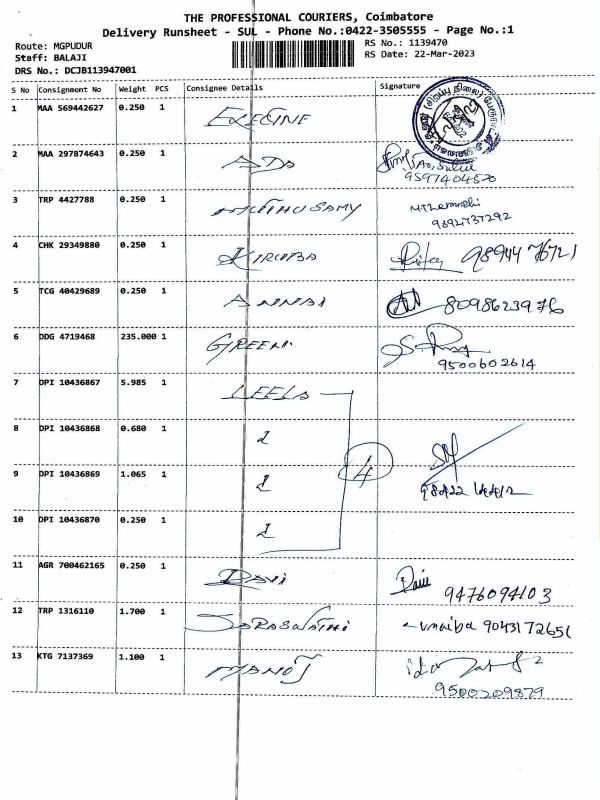 THE PROFESSIONAL COURIERS, Coimbatore
Delivery Runsheet - SUL - Phone No.:0422-3505555 - Page No.:1
Route: MGPUDUR
RS No.: 1139470
Staff: BALAJI
RS Date: 22-Mar-2023
DRS No.: DCJB113947001
S No Consignment No Weight PCS Consignee Details Signature
1 MAA 569442627 0.250 1
2 MAA 297874643 0.250 1 ADS
9597404520
3 TRP 4427788 0.250 1 MUTHUSAMY
4 CHK 29349880 0.250 1 KIRUBA 98944 76721
5 TCG 40429689 0.250 1 ANNAI 8098623976
6 DDG 4719468 235.000 1 GREEN
9500602614
7 DPI 10436867 5.985 1 LEELA
8 DPI 10436868 0.680 1
4
9 DPI 10436869 1.065 1
10 DPI 10436870 0.250 1
11 AGR 700462165 0.250 1 RAVI
9476094103
12 TRP 1316110 1.700 1 SARASWATHI 9043172651
13 KTG 7137369 1.100 1 MANOJ
9500209879